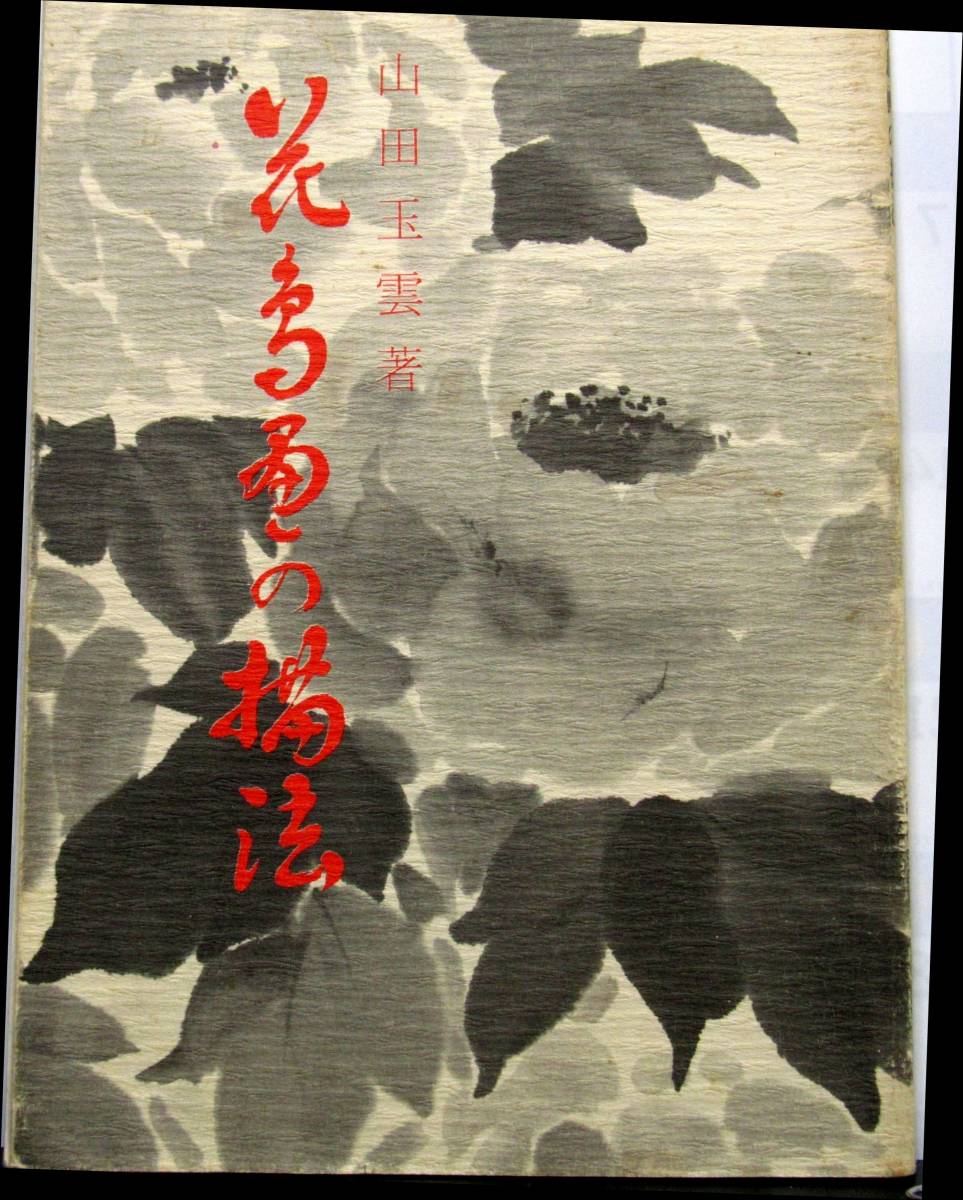 山田玉雲著
花鳥画の描法